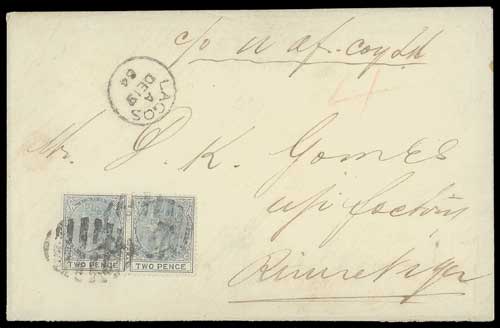 c/o W Af. Coy Ld
LAGOS
A
DE 19
84
4
Mr. J. K. Gomes
River Niger
TWO PENCE TWO PENCE